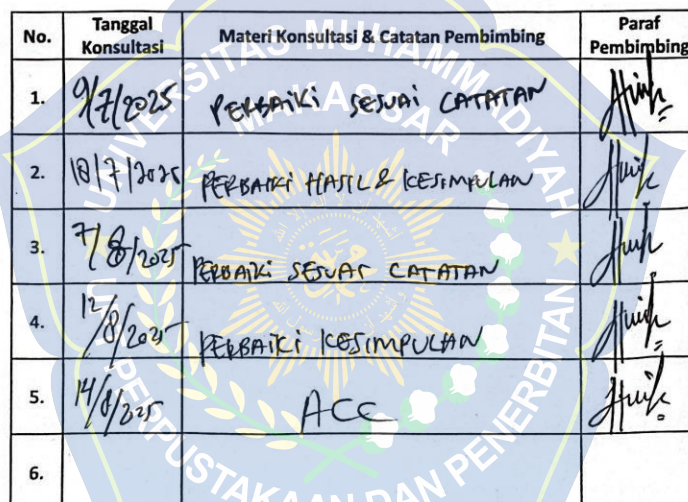 No. Tanggal Konsultasi Materi Konsultasi & Catatan Pembimbing Paraf Pembimbing
1. 9/7/2025 PERBAIKI SESUAI CATATAN
2. 18/7/2025 PERBAIKI HASIL & KESIMPULAN
3. 7/8/2025 PERBAIKI SESUAI CATATAN
4. 12/8/2025 PERBAIKI KESIMPULAN
5. 14/8/2025 ACC
6.
UNIVERSITAS MUHAMMADIYAH
MAKASSAR
PERPUSTAKAAN DAN PENERBITAN